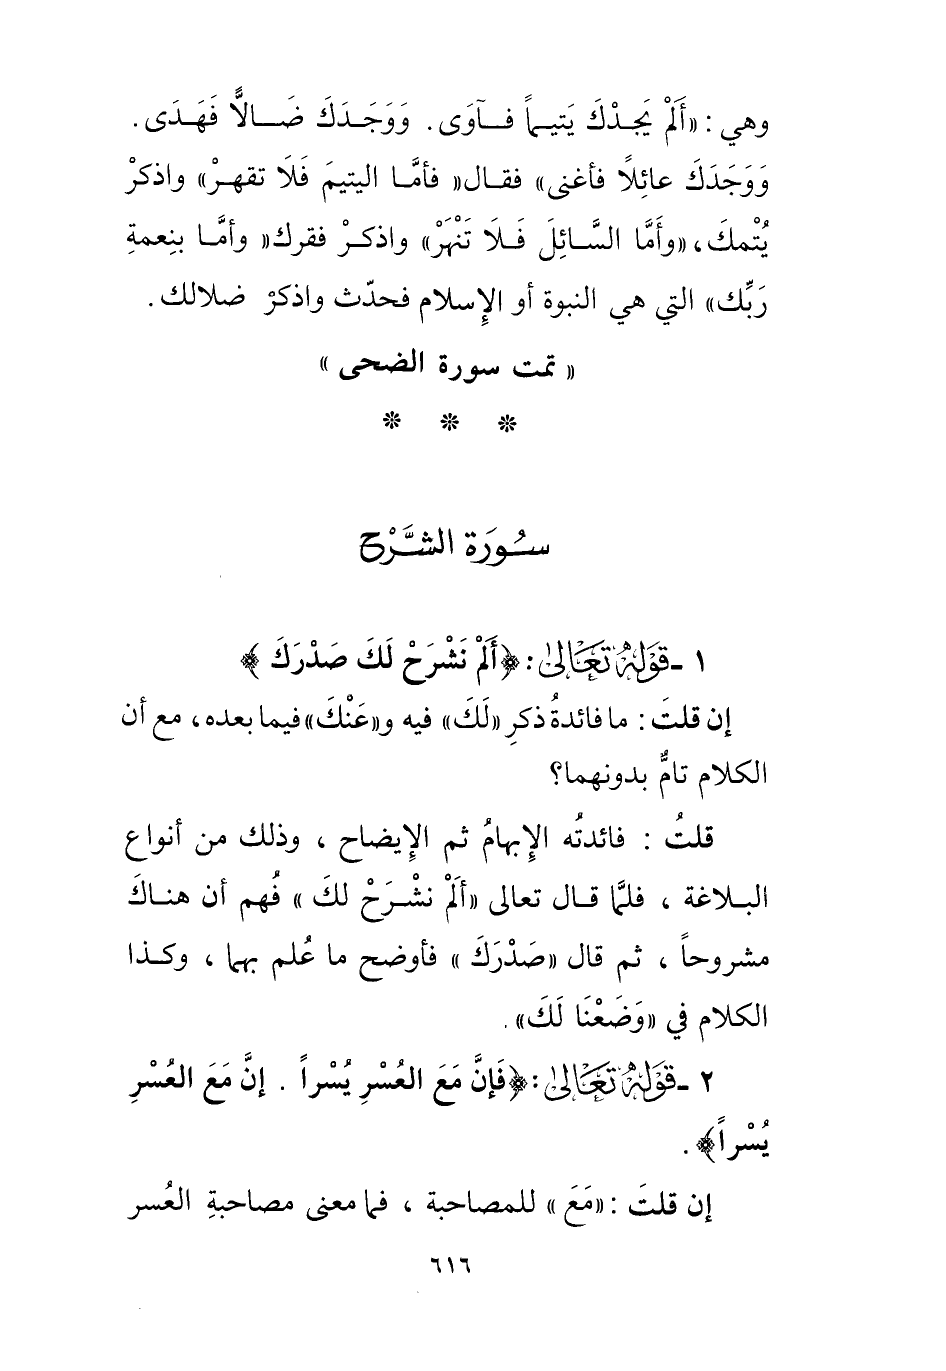 وهي : «أَلَمْ يَجِدْكَ يَتيماً فآوَى . وَوَجَدَكَ ضَالاًّ فَهَدَى .
وَوَجَدَكَ عائِلاً فأغنى» فقال« فأمَّا اليتيمَ فَلَا تقهرْ» واذكرْ
يُتْمكَ ، «وأَمَّا السَّائِلَ فَلَا تَنْهَرْ» واذكرْ فقرك« وأمَّا بنِعمةِ
رَبِّك» التي هي النبوة أو الإِسلام فحدّث واذكرْ ضلالك .
« تمت سورة الضحى »
* * *
سُورَة الشَّرْح
١ ـ قَوْلُهُ تَعَالَىٰ : ﴿أَلَمْ نَشْرَحْ لَكَ صَدْرَكَ ﴾
إن قلتَ : ما فائدةُ ذكرِ «لَكَ» فيه و«عَنْكَ» فيما بعده ، مع أن
الكلام تامٌّ بدونهما؟
قلتُ : فائدتُه الإِبهامُ ثم الإِيضاح ، وذلك من أنواع
البلاغة ، فلمَّا قال تعالى «أَلَمْ نشْرَحْ لكَ » فُهم أن هناكَ
مشروحاً ، ثم قال «صَدْرَكَ » فأوضح ما عُلم بهما ، وكذا
الكلام في «وَضَعْنَا لَكَ» .
٢ ـ قَوْلُهُ تَعَالَىٰ : ﴿فَإنَّ مَعَ العُسْرِ يُسْراً . إنَّ مَعَ العُسْرِ
يُسْراً﴾ .
إن قلتَ : «مَعَ » للمصاحبة ، فما معنى مصاحبةِ العُسر
٦١٦